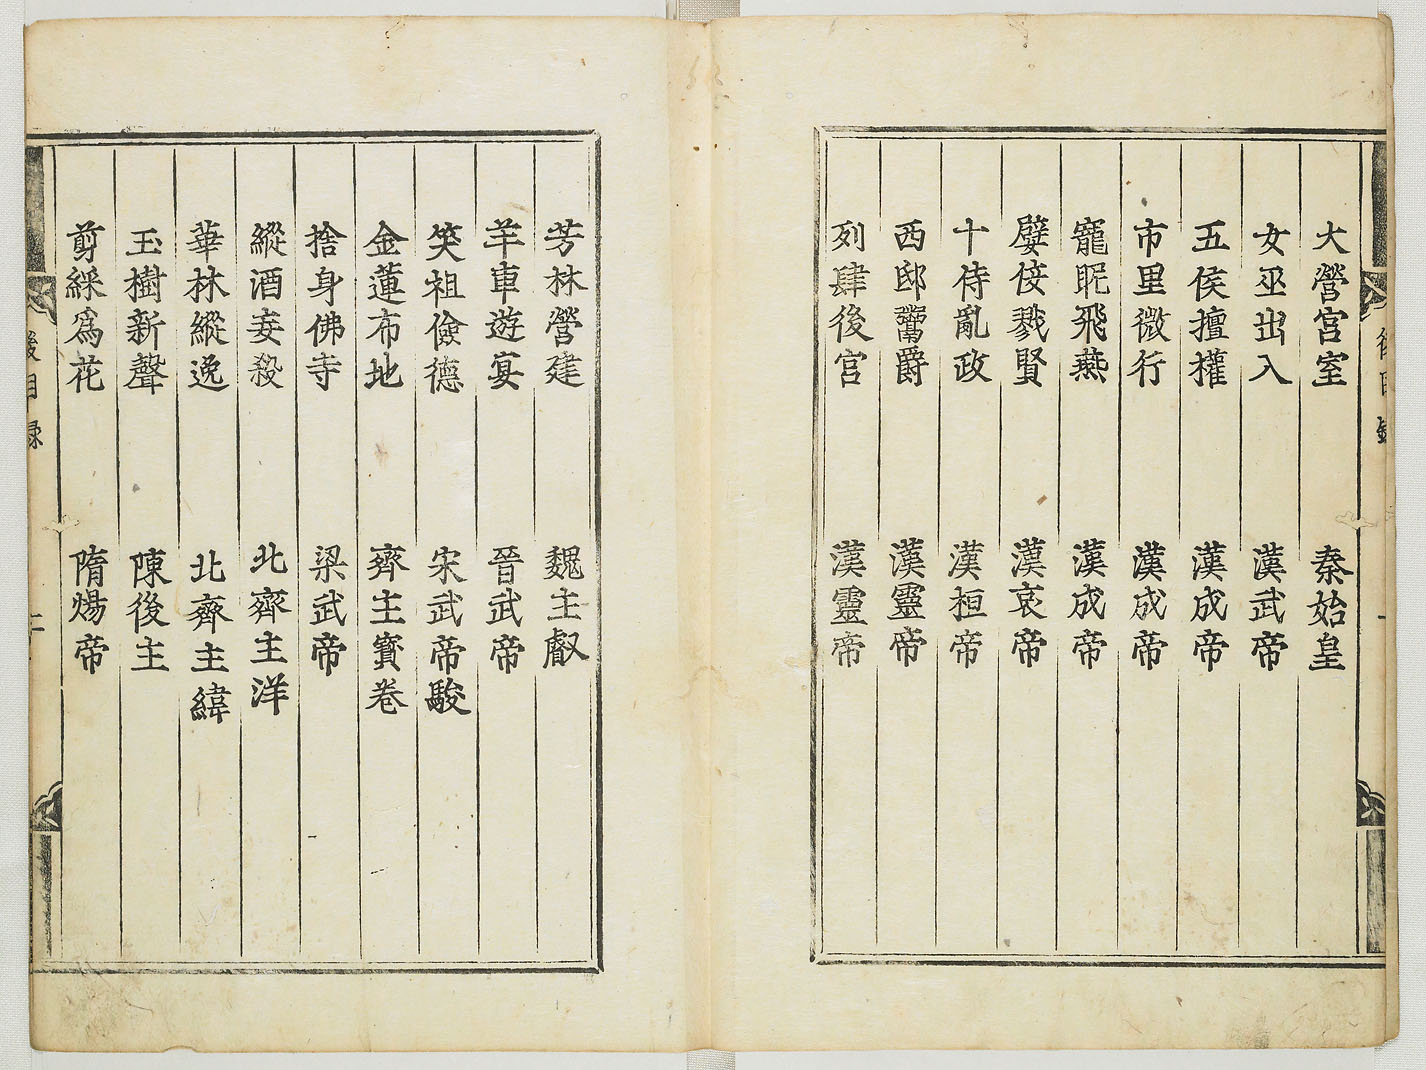 大營宮室 秦始皇
女巫出入 漢武帝
五侯擅權 漢成帝
市里微行 漢成帝
寵昵飛燕 漢成帝
嬖佞戮賢 漢哀帝
十侍亂政 漢桓帝
西邸鬻爵 漢靈帝
列肆後宮 漢靈帝
芳林營建 魏主叡
羊車遊宴 晉武帝
笑祖儉德 宋武帝駿
金蓮布地 齊主寶卷
捨身佛寺 梁武帝
縱酒妄殺 北齊主洋
華林縱逸 北齊主緯
玉樹新聲 陳後主
剪綵爲花 隋煬帝
後目録 二